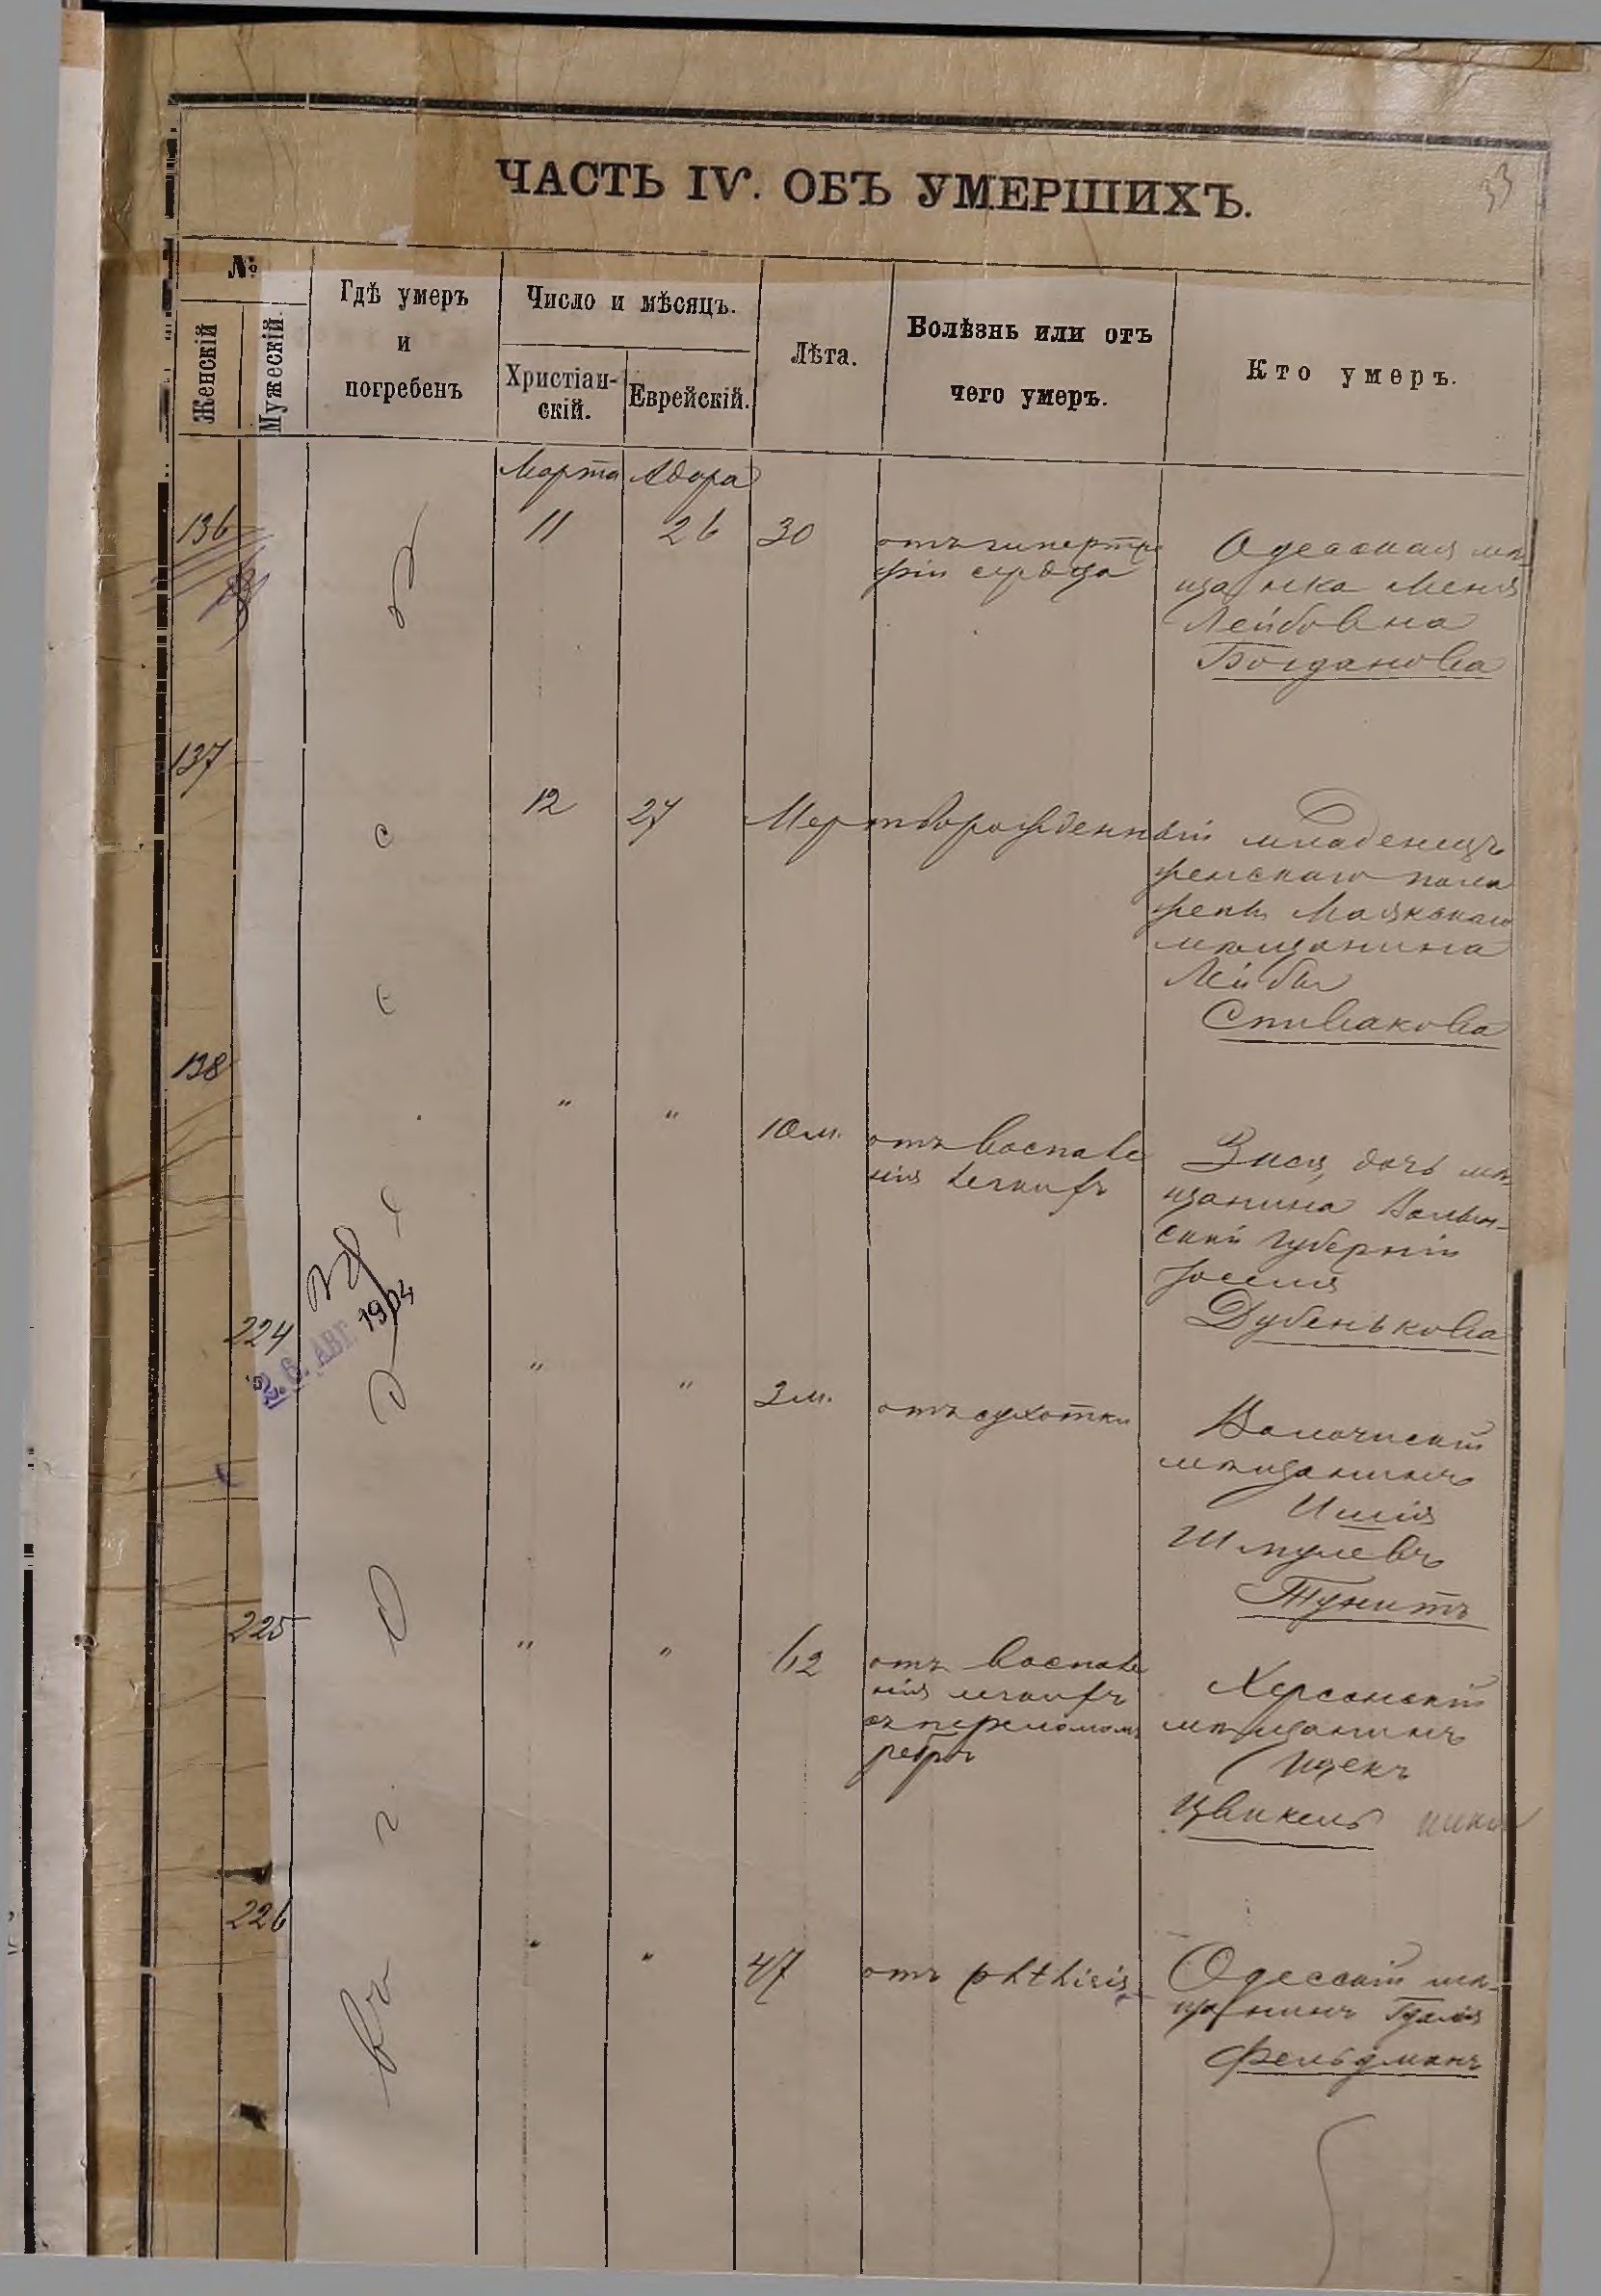 33
ЧАСТЬ IV. ОБЪ УМЕРШИХЪ.
№
Женскій
Мужескій.
Гдѣ умеръ
и
погребенъ
Число и мѣсяцъ.
Христіан-
скій.
Еврейскій.
Лѣта.
Болѣзнь или отъ
чего умеръ.
Кто умеръ.
Марта Адара
136
11 26 30
отъ гипертро
фіи сердца
Одесская мѣ-
щанка Меня
Лейбовна
Богданова
137
12 27 Мертворожденный младенецъ
женскаго пола
жены Маякскаго
мѣщанина
Лейбы
Спивакова
138
" " 10 м.
отъ воспале
нія легкихъ
Зися, дочь мѣ-
щанина Волын-
ской губерніи
Іоселя
Дубенькова
224
26. АВГ. 1904
" " 3 м. отъ сухотки
Волочискій
мѣщанинъ
Шмулевъ
Тунитъ
225
" " 1/12
отъ воспале
нія легкихъ
съ переломомъ
ребръ
Херсонскій
мѣщанинъ
Ицекъ
Цвикель
226
" " 47 отъ phthisis
Одесскій мѣ-
щанинъ Гдалія
Фельдманъ